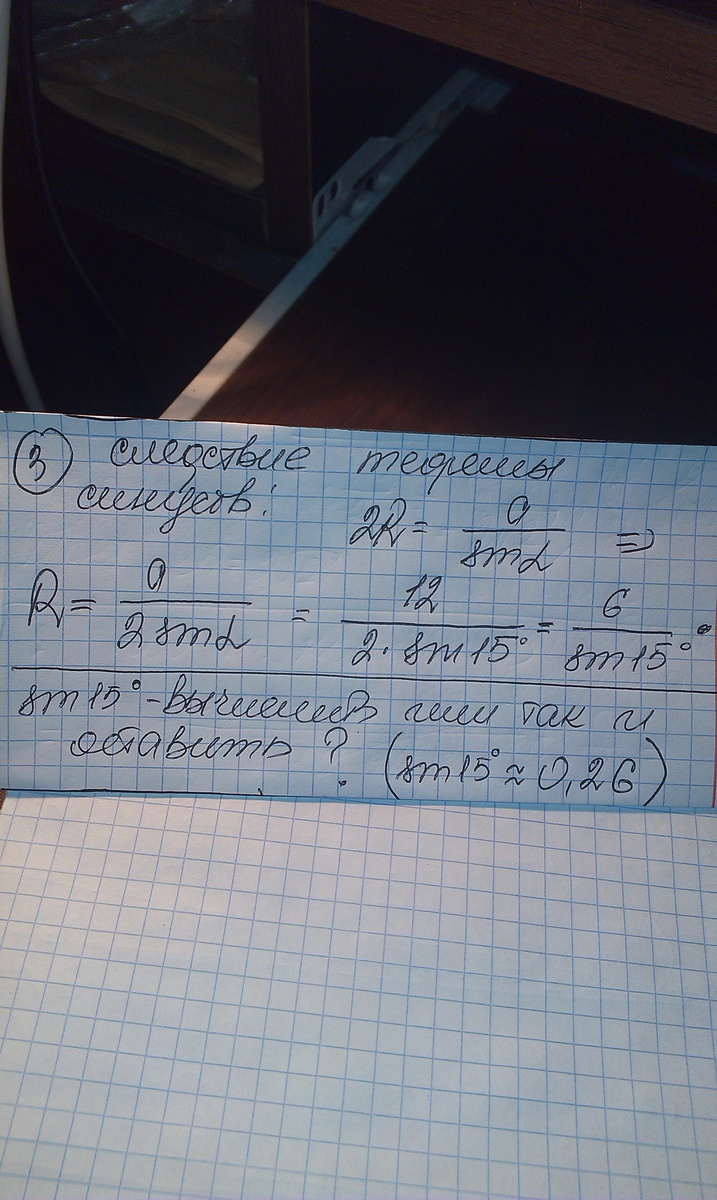 ③ следствие теоремы
синусов:
2R = a / sin α ⇒
R = a / 2 sin α = 12 / 2 · sin 15° = 6 / sin 15° .
sin 15° - вычислить или так и
оставить ? (sin 15° ≈ 0,26)